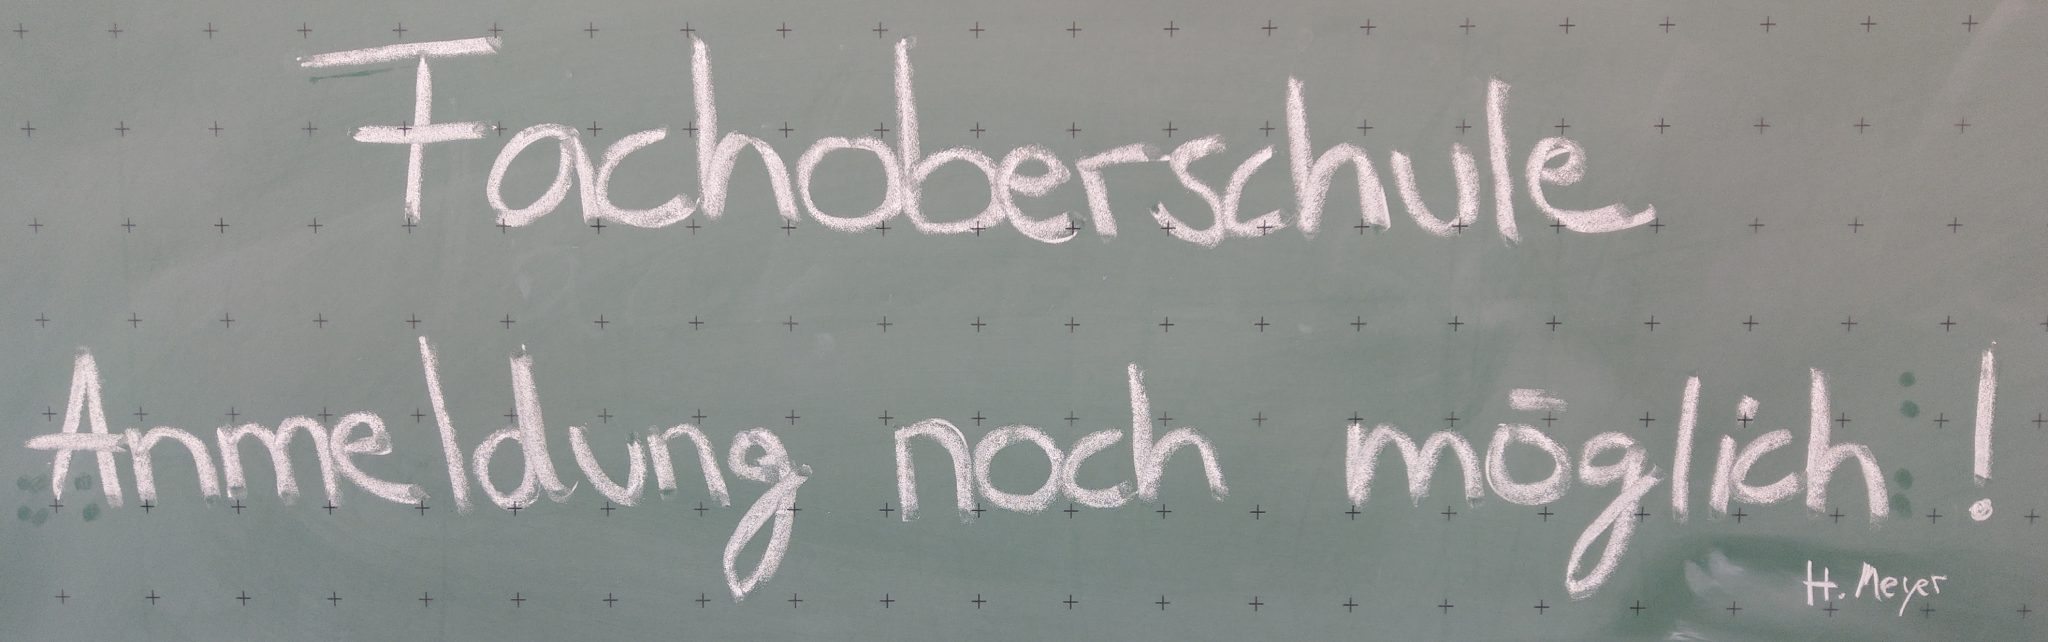 Fachoberschule
Anmeldung noch möglich!
H. Meyer